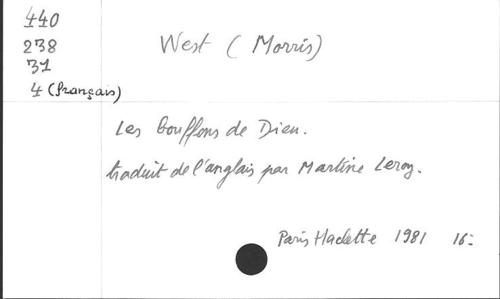 440
238
31
4 (français)
West (Morris)
Les Bouffons de Dieu.
traduit de l'anglais par Martine Leroy.
Paris Hachette 1981 16=